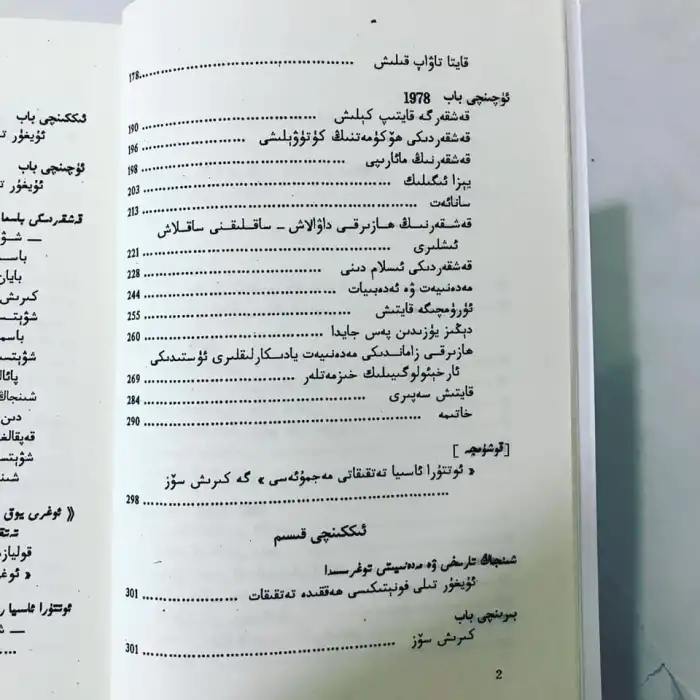 قايتا تاۋاپ قىلىش ........ 178
ئۈچىنچى باب 1978
قەشقەرگە قايتىپ كېلىش ........ 190
قەشقەردىكى ھۆكۈمەتنىڭ كۈتۈۋېلىشى ........ 196
قەشقەرنىڭ مائارىپى ........ 198
يېزا ئىگىلىك ........ 203
سانائەت ........ 213
قەشقەرنىڭ ھازىرقى داۋالاش - ساقلىقنى ساقلاش
ئىشلىرى ........ 221
قەشقەردىكى ئىسلام دىنى ........ 228
مەدەنىيەت ۋە ئەدەبىيات ........ 244
ئۈرۈمچىگە قايتىش ........ 255
دېڭىز يۈزىدىن پەس جايدا ........ 260
ھازىرقى زاماندىكى مەدەنىيەت يادىكارلىقلىرى ئۈستىدىكى
ئارخېئولوگىيىلىك خىزمەتلەر ........ 269
قايتىش سەپىرى ........ 284
خاتىمە ........ 290
[قوشۇمچە]
« ئوتتۇرا ئاسىيا تەتقىقاتى مەجمۇئەسى » گە كىرىش سۆز
........ 298
ئىككىنچى قىسىم
شىنجاڭ تارىخى ۋە مەدەنىيىتى توغرىسىدا
ئۇيغۇر تىلى فونېتىكىسى ھەققىدە تەتقىقات ........ 301
بىرىنچى باب
كىرىش سۆز ........ 301
2
ئىككىنچى باب
ئۇيغۇر
ئۈچىنچى باب
ئۇيغۇر
قەشقەردىكى
بايان
كىرىش
شىنجاڭ
دىن
« ئوغرى يوق
ئوتتۇرا ئاسىيا